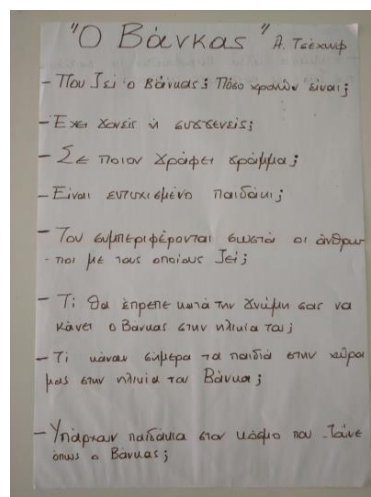 "Ο Βάνκας" Α. Τσέχωφ
- Που ζει ο Βάνκας; Πόσο χρονών είναι;
- Έχει γονείς ή συγγενείς;
- Σε ποιον γράφει γράμμα;
- Είναι ευτυχισμένο παιδάκι;
- Του συμπεριφέρονται σωστά οι άνθρω-
-ποι με τους οποίους ζει;
- Τι θα έπρεπε κατά την γνώμη σας να
κάνει ο Βάνκας στην ηλικία του;
- Τι κάνουν σήμερα τα παιδιά στην χώρα
μας στην ηλικία του Βάνκα;
- Υπάρχουν παιδάκια στον κόσμο που ζούνε
όπως ο Βάνκας;